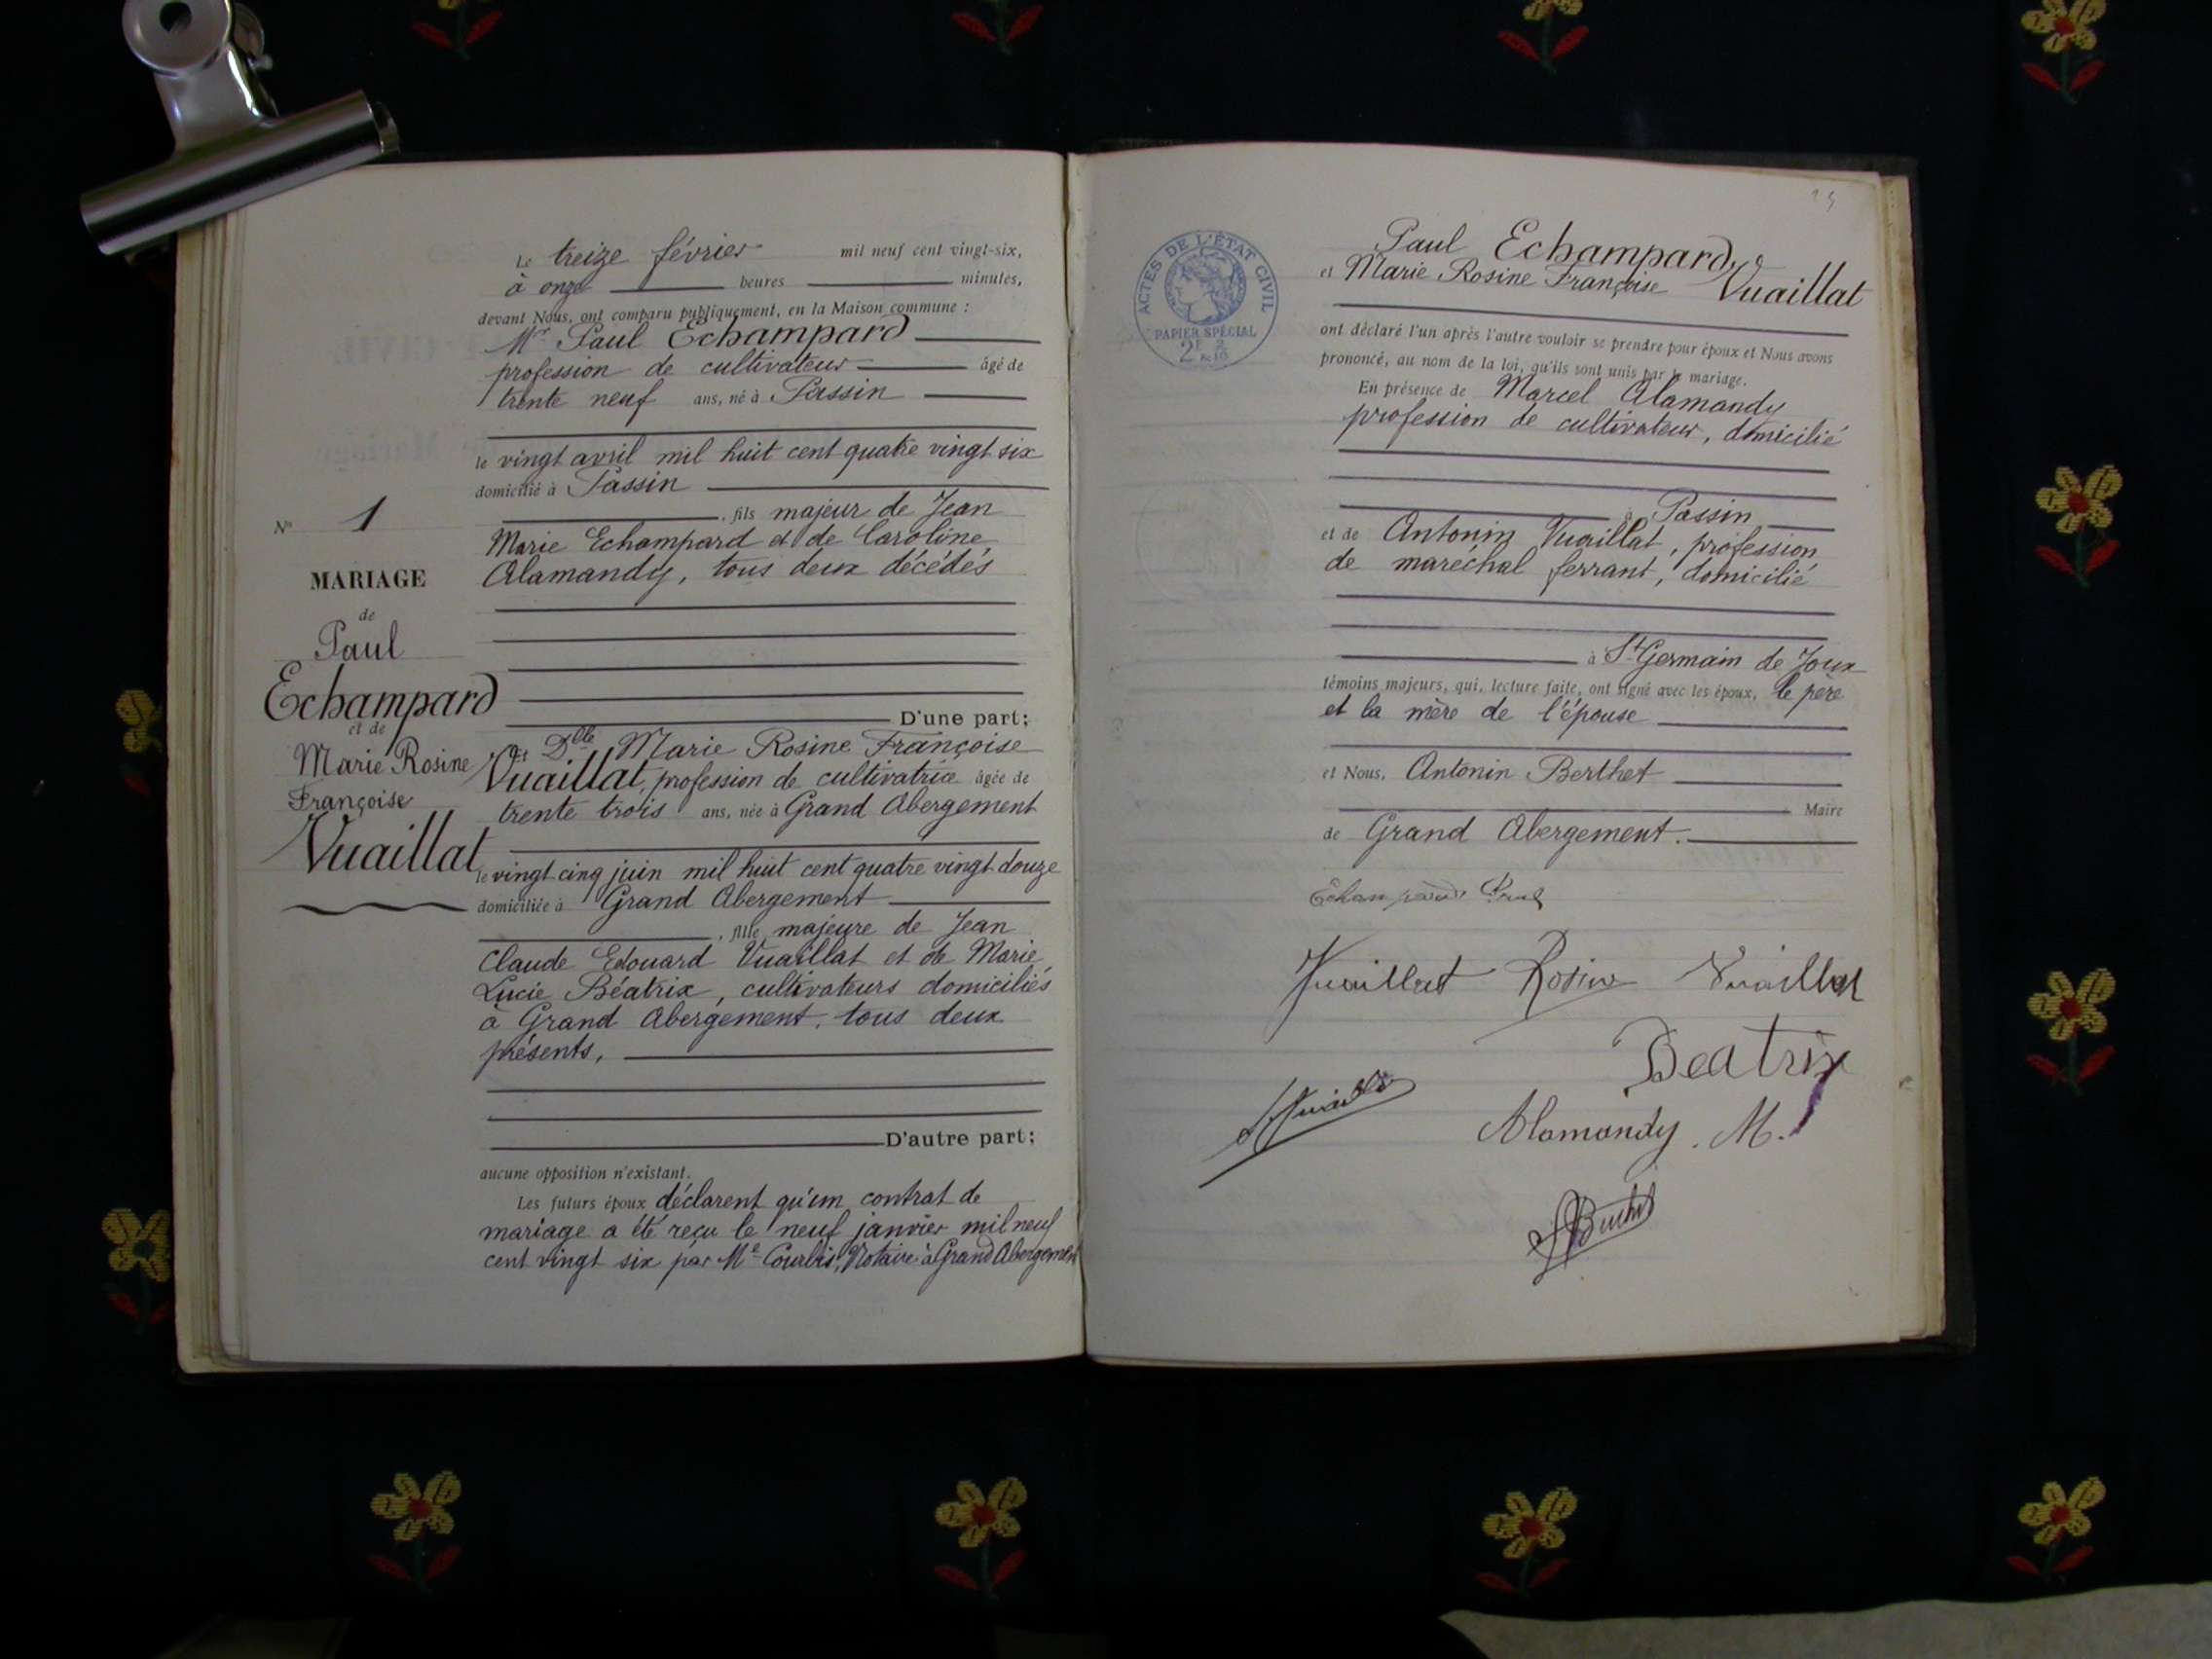 Le treize février mil neuf cent vingt-six,
à onze heures minutes,
devant Nous, ont comparu publiquement, en la Maison commune :
Mr Paul Echampard
profession de cultivateur âgé de
trente neuf ans, né à Passin
le vingt avril mil huit cent quatre vingt six
domicilié à Passin
, fils majeur de Jean
Marie Echampard et de Caroline
Alamandy, tous deux décédés
D'une part;
Et Dlle Marie Rosine Françoise
Vuaillat, profession de cultivatrice âgée de
trente trois ans, née à Grand Abergement
le vingt cinq juin mil huit cent quatre vingt douze
domiciliée à Grand Abergement
, fille majeure de Jean
Claude Edouard Vuaillat et de Marie
Lucie Béatrix, cultivateurs domiciliés
à Grand Abergement, tous deux
présents,
D'autre part;
aucune opposition n'existant.
Les futurs époux déclarent qu'un contrat de
mariage a été reçu le neuf janvier mil neuf
cent vingt six par Me Courbis, Notaire à Grand Abergement
No 1
MARIAGE
de
Paul
Echampard
et de
Marie Rosine
Françoise
Vuaillat
ACTES DE L'ÉTAT CIVIL
PAPIER SPÉCIAL
Paul Echampard,
et Marie Rosine Françoise Vuaillat
ont déclaré l'un après l'autre vouloir se prendre pour époux et Nous avons
prononcé, au nom de la loi, qu'ils sont unis par le mariage.
En présence de Marcel Alamandy
profession de cultivateur, domicilié
à Passin
et de Antonin Vuaillat, profession
de maréchal ferrant, domicilié
à St Germain de Joux
témoins majeurs, qui, lecture faite, ont signé avec les époux, le père
et la mère de l'épouse
et Nous, Antonin Berthet
Maire
de Grand Abergement.
Echampard Paul
Vuaillat Rosine Vuaillat
Beatrix
Vuaillat
Alamandy . M.
Berthet